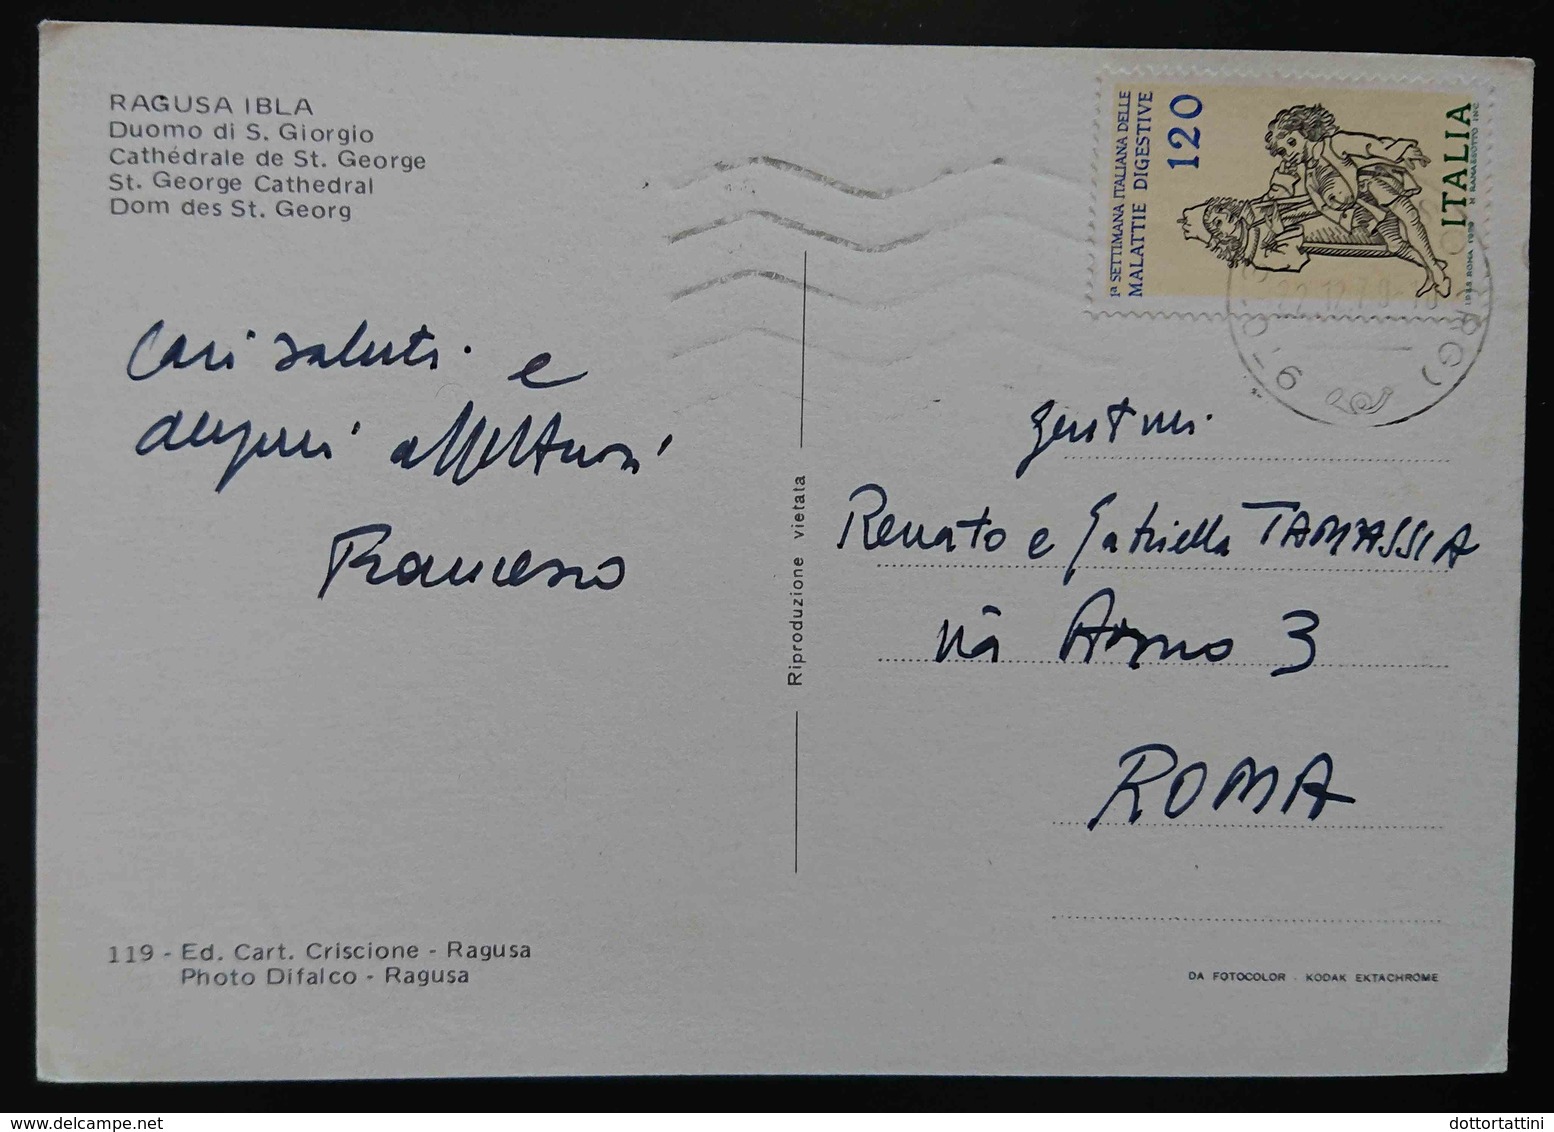 RAGUSA IBLA
Duomo di S. Giorgio
Cathédrale de St. George
St. George Cathedral
Dom des St. Georg
Cari saluti e
auguri affettuosi
Francesco
119 - Ed. Cart. Criscione - Ragusa
Photo Difalco - Ragusa
Riproduzione vietata
1ª SETTIMANA ITALIANA DELLE
MALATTIE DIGESTIVE
120
ITALIA
Gent.mi
Renato e Gabriella TAMASSIA
via Arno 3
ROMA
DA FOTOCOLOR - KODAK EKTACHROME
www.delcampe.net
dottortattini